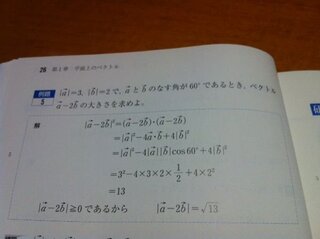 26 第1章 平面上のベクトル
例題 5 |a⃗|=3, |b⃗|=2で, a⃗とb⃗のなす角が60°であるとき, ベクトル
a⃗−2b⃗の大きさを求めよ。
解 |a⃗−2b⃗|²=(a⃗−2b⃗)·(a⃗−2b⃗)
=|a⃗|²−4a⃗·b⃗+4|b⃗|²
=|a⃗|²−4|a⃗||b⃗|cos60°+4|b⃗|²
=3²−4×3×2×1/2+4×2²
=13
|a⃗−2b⃗|≧0であるから |a⃗−2b⃗|=√13